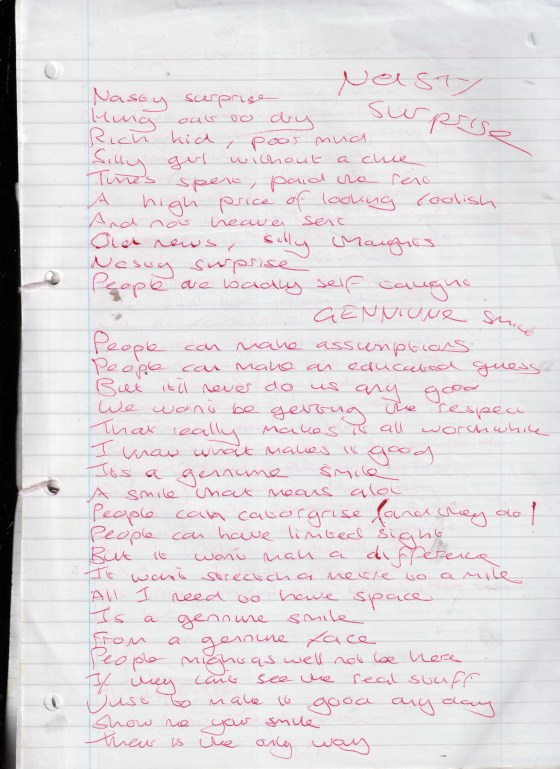 NASTY
SURPRISE
Nasty surprise
Hung out to dry
Rich kid, poor mud
Silly girl without a clue
Times spent, paid the rent
A high price of looking foolish
And not heaven sent
Old news, silly thoughts
Nasty surprise
People are badly self caught
GENNIUNE SMILE
People can make assumptions
People can make an educated guess
But it'll never do us any good
We won't be getting the respect
That really makes it all worthwhile
I know what makes it good
Its a genniune smile
A smile that means alot
People can catorgrise (and they do!
People can have limited sight
But it won't mak a difference
It won't stretch a metre to a mile
All I need to have space
Is a genniune smile
From a genniune face
People might as well not be here
If they can't see the real stuff
Just to make it good any day
Show me your smile
That is the only way